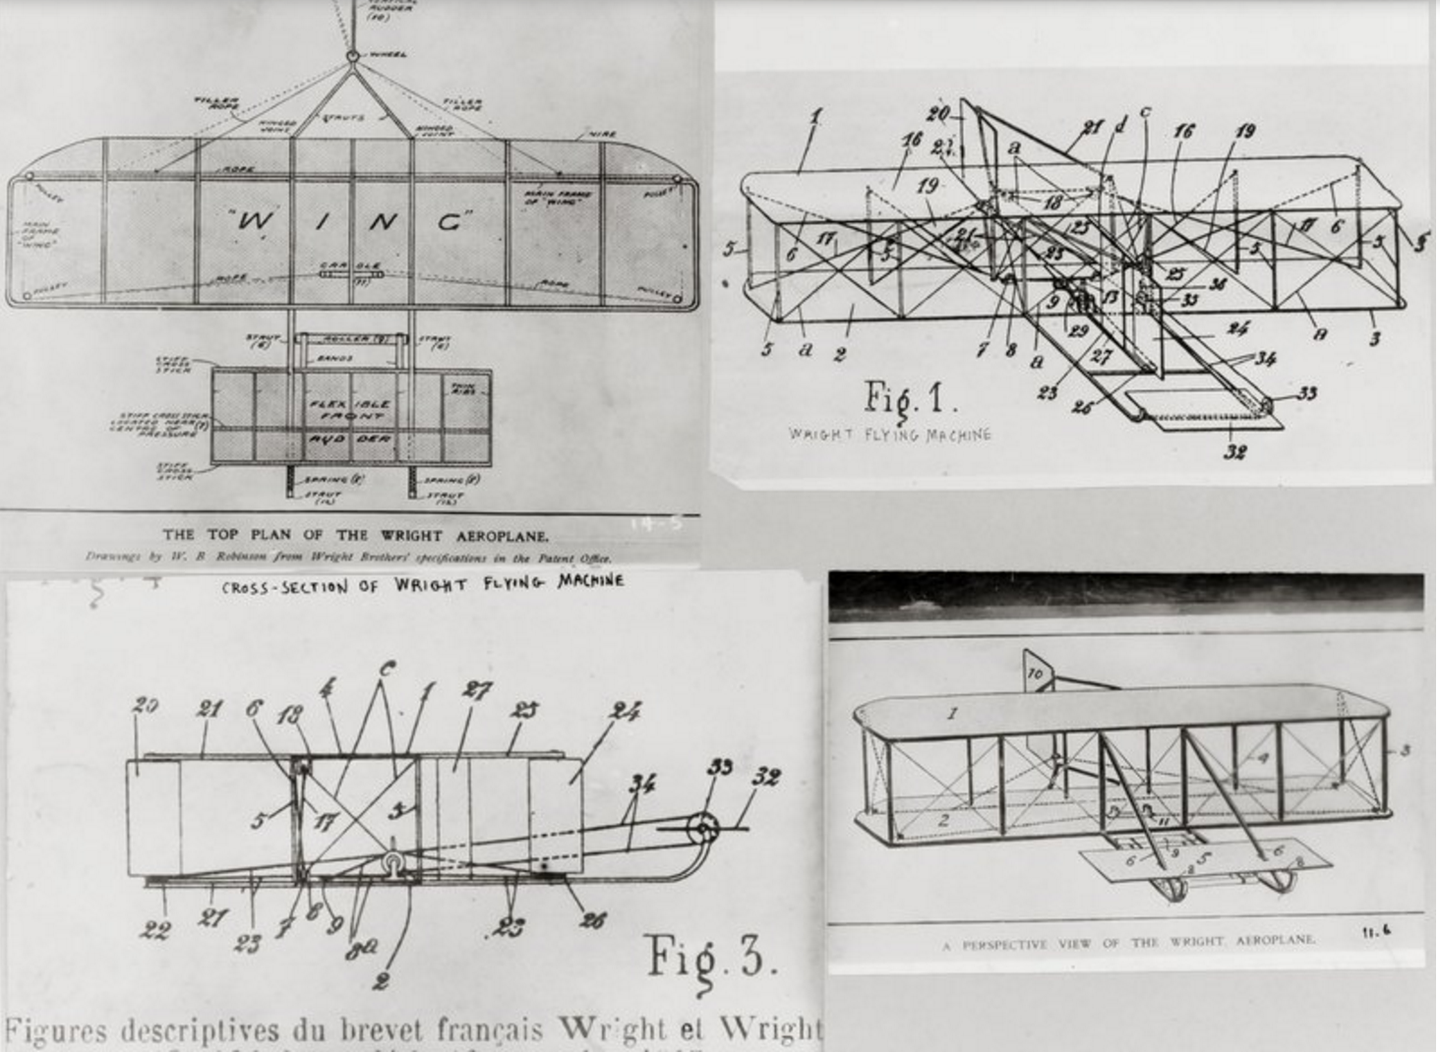 RUDDER
(10)
WHEEL
TILLER
ROPE
TILLER
ROPE
STRUTS
HINGED
JOINT
HINGED
JOINT
WIRE
ROPE
PULLEY
PULLEY
MAIN FRAME
OF "WING"
"WING"
MAIN
FRAME
OF
"WING"
CRADLE
(11)
ROPE
ROPE
PULLEY
PULLEY
STRUT
(6)
ROLLER (9)
STRUT
(6)
BANDS
STIFF
CROSS
STICK
THIN
RIBS
FLEXIBLE
FRONT
RUDDER
STIFF CROSS STICK
LOCATED NEAR (7)
CENTRE OF
PRESSURE
STIFF
CROSS
STICK
SPRING (8)
SPRING (8)
STRUT
(12)
STRUT
(12)
14-5
THE TOP PLAN OF THE WRIGHT AEROPLANE.
Drawings by W. B Robinson from Wright Brothers' specifications in the Patent Office.
1 20 21 d c 16 19
16 a
19 18
5 6 17 5 21 23 5 17 6 5
23 25
13 36
9 35
5 a 2 7 8 a 29 24 a 3
27 34
23 26 33
32
Fig. 1.
WRIGHT FLYING MACHINE
CROSS-SECTION OF WRIGHT FLYING MACHINE
C
20 21 6 18 4 1 27 25 24
34 33 32
5 17 3
22 21 23 7 8 9 8a 23 26
2
Fig. 3.
Figures descriptives du brevet français Wright et Wright
10
1
4 3
2 11
6 9 5 6
8 8
A PERSPECTIVE VIEW OF THE WRIGHT AEROPLANE.
11.6